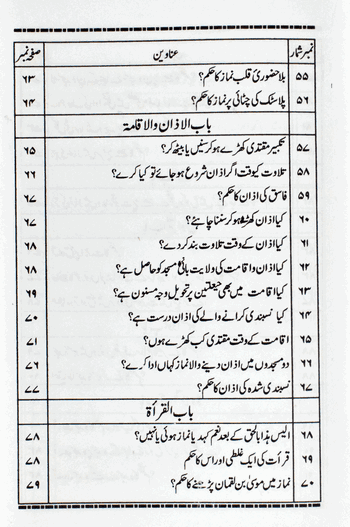 نمبر شمار عناوین صفحہ نمبر
۵۵ بلا حضوری قلب نماز کا حکم؟ ۶۳
۵۶ پلاسٹک کی چٹائی پر نماز کا حکم؟ ۶۴
باب الاذان والاقامة
۵۷ تکبیر مقتدی کھڑے ہو کر سنیں یا بیٹھ کر؟ ۶۵
۵۸ تلاوت کیوقت اگر اذان شروع ہو جائے تو کیا کرے؟ ۶۶
۵۹ فاسق کی اذان کا حکم؟ ۶۷
۶۰ کیا اذان کھڑے ہو کر سننا چاہئے؟ ۶۷
۶۱ کیا اذان کے وقت تلاوت بند کر دے؟ ۶۸
۶۲ کیا اذان واقامت کی ولایت بانی مسجد کو حاصل ہے؟ ۶۸
۶۳ کیا اقامت میں بھی حیعلتین پر تحویل وجہ مسنون ہے؟ ۶۹
۶۴ کیا نسبندی کرانے والے کی اذان درست ہے؟ ۷۰
۶۵ اقامت کے وقت مقتدی کب کھڑے ہوں؟ ۷۱
۶۶ دو مسجدوں میں اذان دینے والا نماز کہاں ادا کرے؟ ۷۶
۶۷ نسبندی شدہ کی اذان کا حکم؟ ۷۷
باب القرأة
۶۸ الیس ہذا بالحق کے بعد نعم کہدیا نماز ہوئی یا نہیں؟ ۷۸
۶۹ قرأت کی ایک غلطی اور اس کا حکم ۷۸
۷۰ نماز میں موسیٰ بن لقمان پڑھنے کا حکم؟ ۷۹